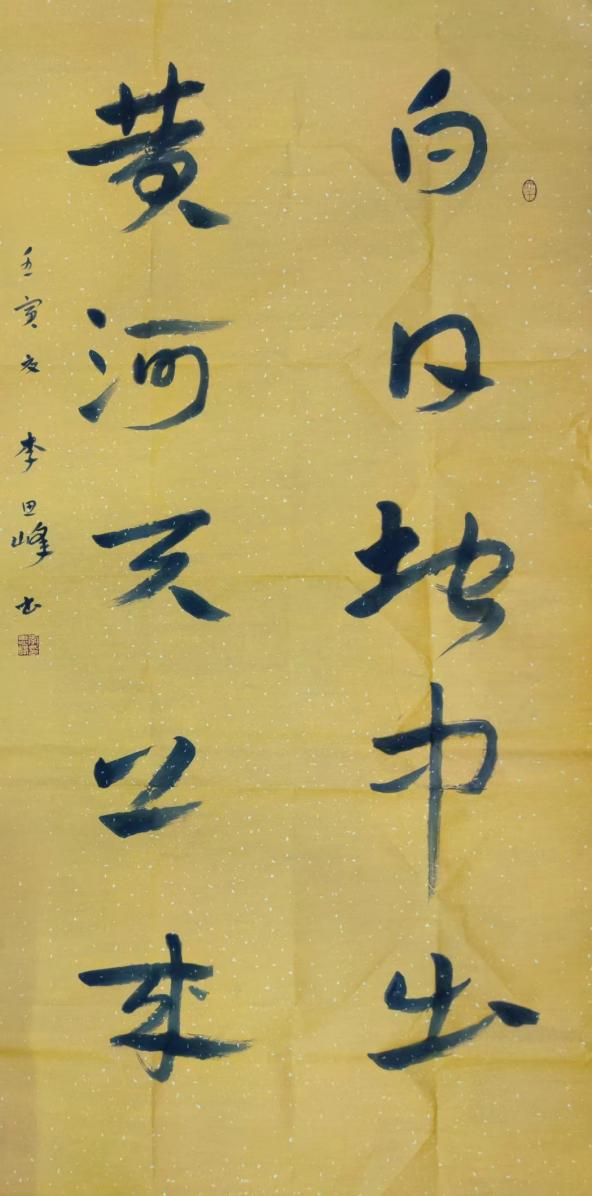 白日地中出
黄河天上来
壬寅夏 李思峰书